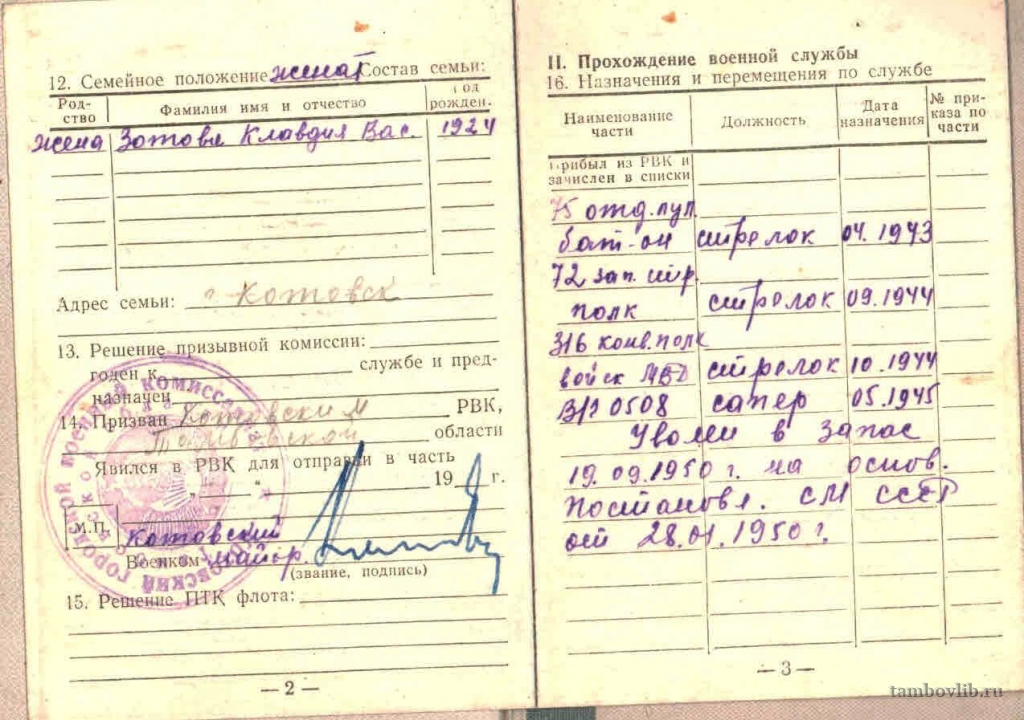 12. Семейное положение женат Состав семьи:
Род-
ство
Фамилия имя и отчество
Год
рожден.
жена Зотова Клавдия Вас. 1924
Адрес семьи: г. Котовск
13. Решение призывной комиссии:
годен к службе и пред-
назначен
14. Призван Котовским РВК,
Тамбовской области
Явился в РВК для отправки в часть
" " 19 г.
М.П. Котовский
Военком майор
(звание, подпись)
15. Решение ПТК флота:
— 2 —
II. Прохождение военной службы
16. Назначения и перемещения по службе
Наименование
части
Должность
Дата
назначения
№ при-
каза по
части
Прибыл из РВК и
зачислен в списки
75 отд. пул.
бат-он стрелок 04.1943
72 зап. стр.
полк стрелок 09.1944
316 конв. полк
войск МВД стрелок 10.1944
В/г 0508 сапер 05.1945
Уволен в запас
19.09.1950 г. на основ.
Постановл. СМ СССР
от 28.01.1950 г.
— 3 —
tambovlib.ru